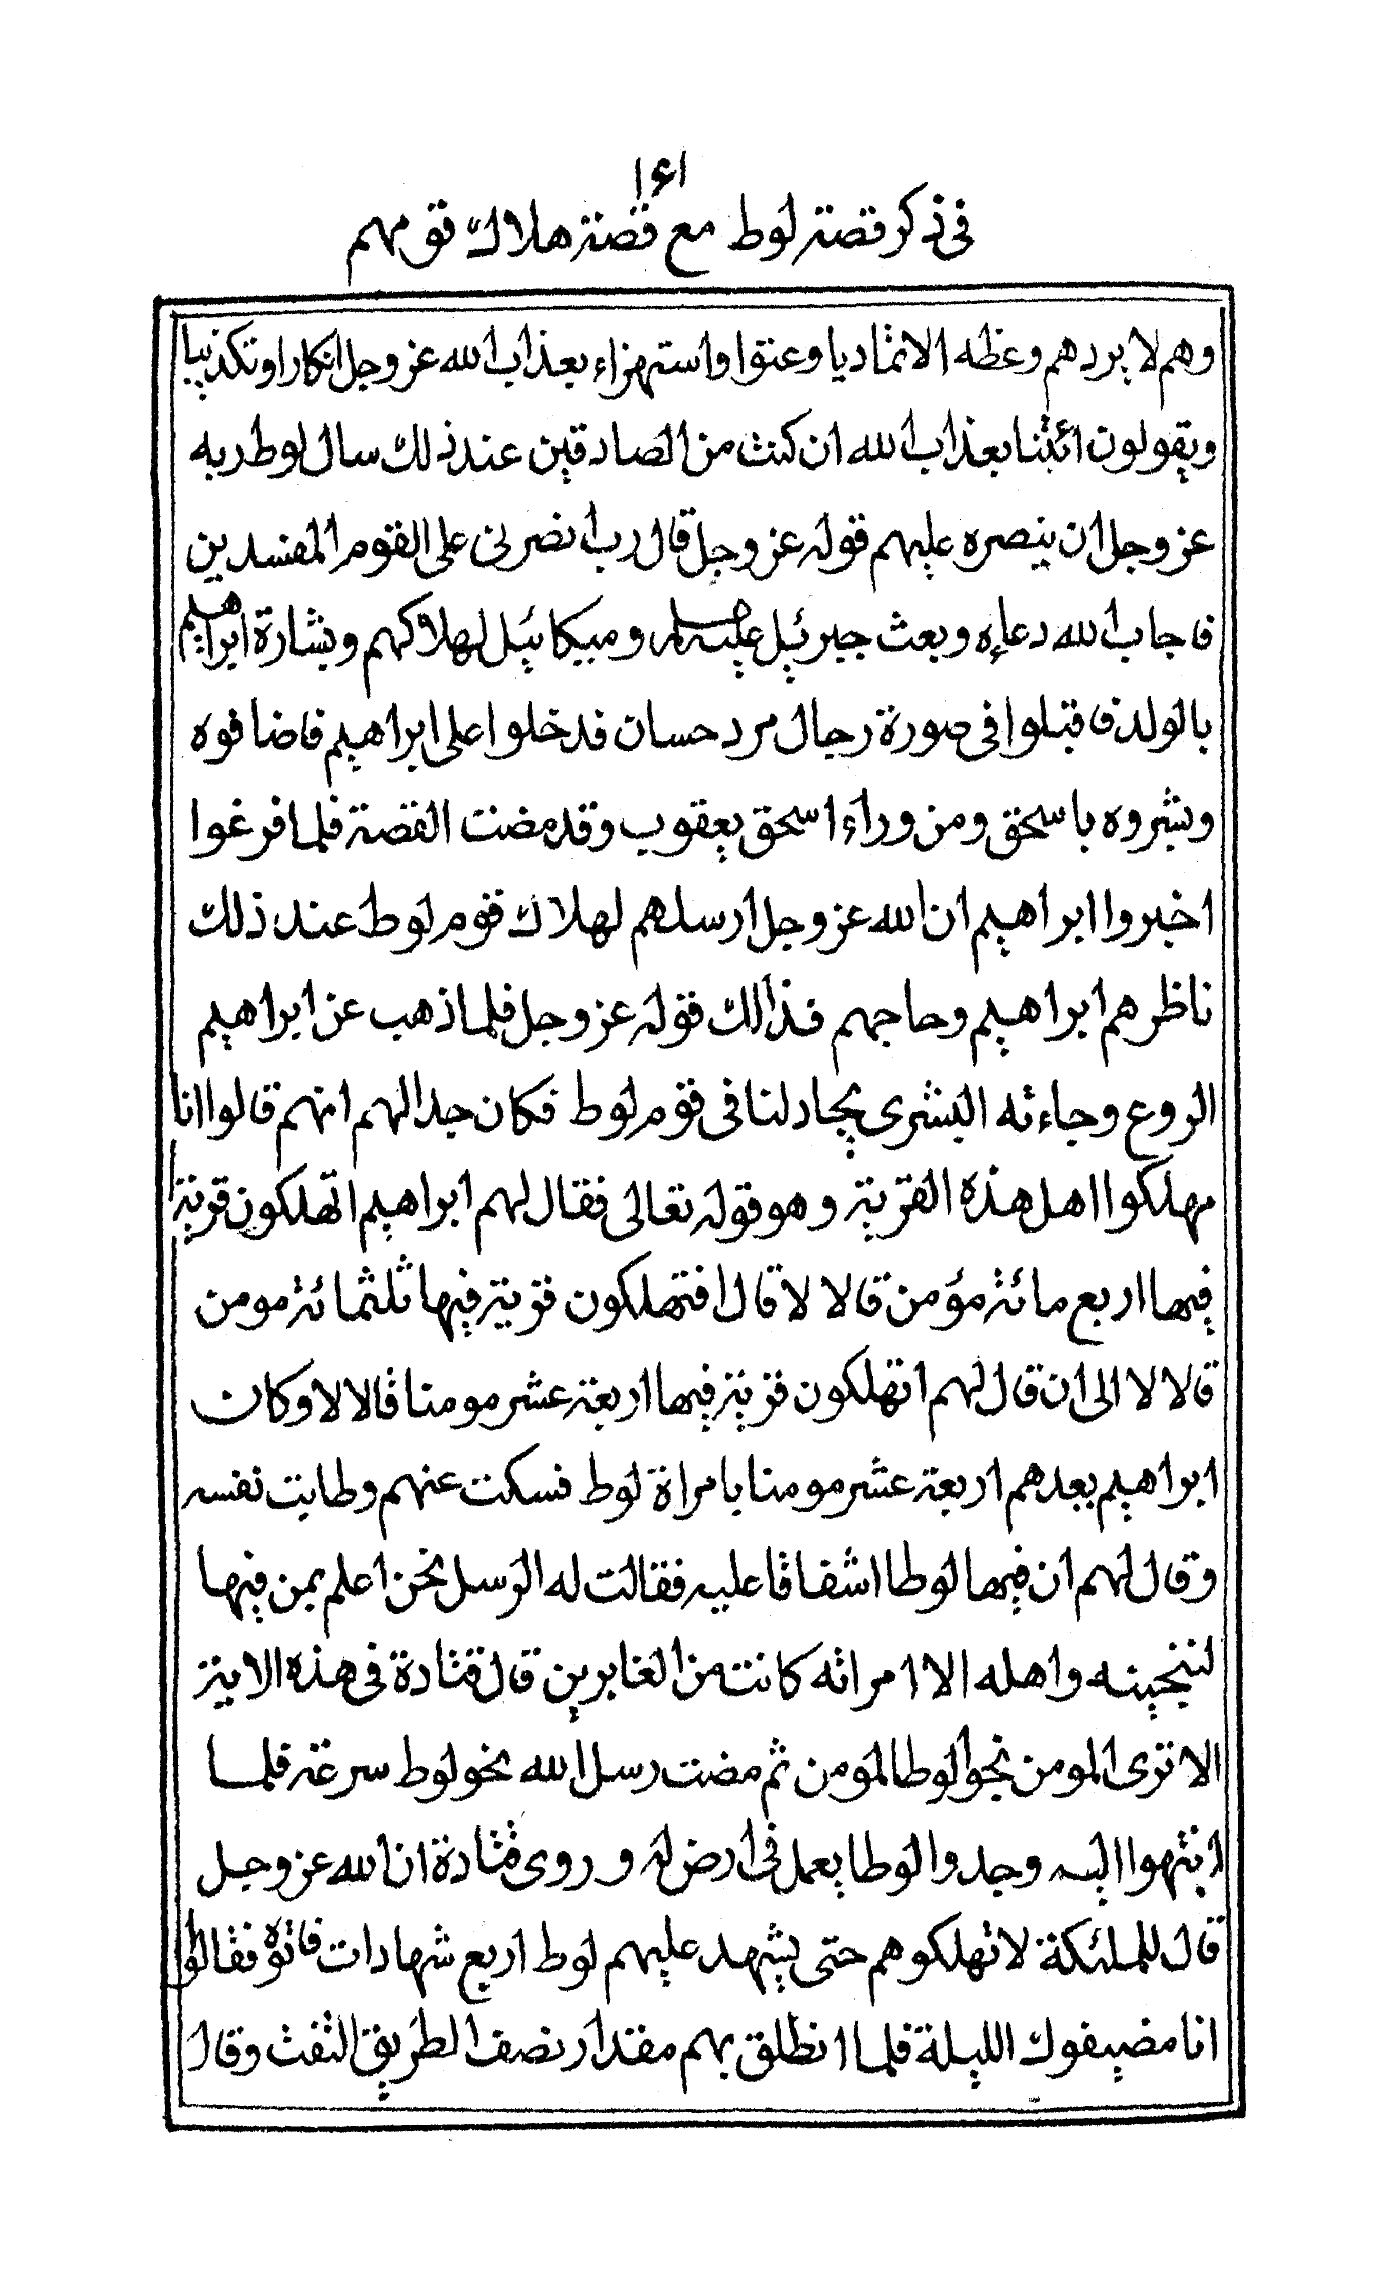 ١٤١
في ذكر قصة لوط مع قصة هلاك قومهم
وهم لا يردهم وعظه الا تماديا وعتوا واستهزاء بعذاب الله عز وجل انكارا وتكذيبا
ويقولون ائتنا بعذاب الله ان كنت من الصادقين عند ذلك سال لوط ربه
عز وجل ان ينصره عليهم قوله عز وجل قال رب انصرني على القوم المفسدين
فاجاب الله دعاءه وبعث جبرئيل عليه سلم وميكائيل لهلاكهم وبشارة ابراهيم
بالولد فاقبلوا في صورة رجال مرد حسان فدخلوا على ابراهيم فاضافوه
وبشروه باسحق ومن وراء اسحق يعقوب وقد مضت القصة فلما فرغوا
اخبروا ابراهيم ان الله عز وجل ارسلهم لهلاك قوم لوط عند ذلك
ناظرهم ابراهيم وحاجهم فذالك قوله عز وجل فلما ذهب عن ابراهيم
الروع وجاءته البشرى يجادلنا في قوم لوط فكان جدالهم انهم قالوا انا
مهلكوا اهل هذه القرية وهو قوله تعالى فقال لهم ابراهيم اتهلكون قرية
فيها اربع مائة مؤمن قالا لا قال افتهلكون قرية فيها ثلثمائة مومن
قالا لا الى ان قال لهم اتهلكون قرية فيها اربعة عشر مومنا قالا لا وكان
ابراهيم يعدهم اربعة عشر مومنا بامراة لوط فسكت عنهم وطابت نفسه
وقال لهم ان فيها لوطا اشفاقا عليه فقالت له الرسل نحن اعلم بمن فيها
لننجينه واهله الا امراته كانت من الغابرين قال قتادة في هذه الاية
الا ترى المومن نجوا لوطا المومن ثم مضت رسل الله نحو لوط سرعة فلما
انتهوا اليه وجدوا لوطا يعمل في ارض له وروى قتادة ان الله عز وجل
قال للملئكة لا تهلكوهم حتى يشهد عليهم لوط اربع شهادات فاتوه فقالوا
انا مضيفوك الليلة فلما انطلق بهم مقدار نصف الطريق التفت وقال